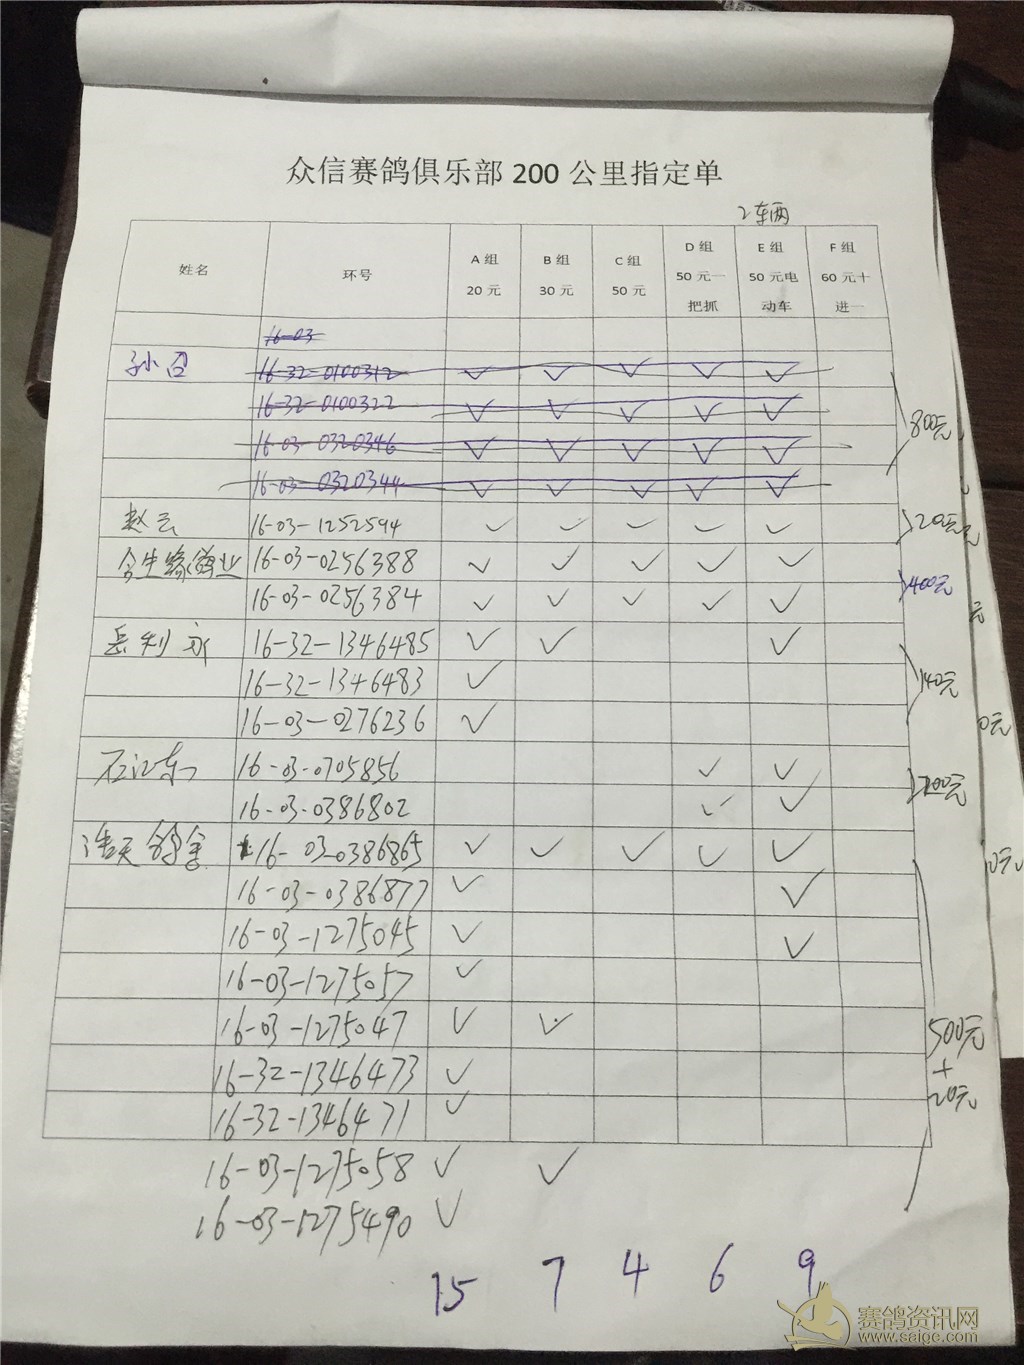 众信赛鸽俱乐部 200 公里指定单
2车两
姓名 环号 A 组 20 元 B 组 30 元 C 组 50 元 D 组 50 元一把抓 E 组 50 元电动车 F 组 60 元十进一
16-03
孙召 16-32-0100312 ✓ ✓ ✓ ✓ ✓
16-32-0100322 ✓ ✓ ✓ ✓ ✓
800元
16-03-0320346 ✓ ✓ ✓ ✓ ✓
16-03-0320344 ✓ ✓ ✓ ✓ ✓
赵云 16-03-1252594 ✓ ✓ ✓ ✓ ✓ 200元
16-03-0256388 ✓ ✓ ✓ ✓ ✓
400元
16-03-0256384 ✓ ✓ ✓ ✓ ✓
元
岳利永 16-32-1346485 ✓ ✓ ✓
16-32-1346483 ✓ 140元
16-03-0276236 ✓
0元
石江东 16-03-0705856 ✓ ✓
200元
16-03-0386802 ✓ ✓
浩天鸽舍 16-03-0386865 ✓ ✓ ✓ ✓ ✓
0元
16-03-0386877 ✓ ✓
16-03-1275045 ✓ ✓
16-03-1275057 ✓
16-03-1275047 ✓ ✓
500元
+
20元
16-32-1346473 ✓
16-32-1346471 ✓
16-03-1275058 ✓ ✓
16-03-1275490 ✓
15 7 4 6 9
赛鸽资讯网
www.saige.com